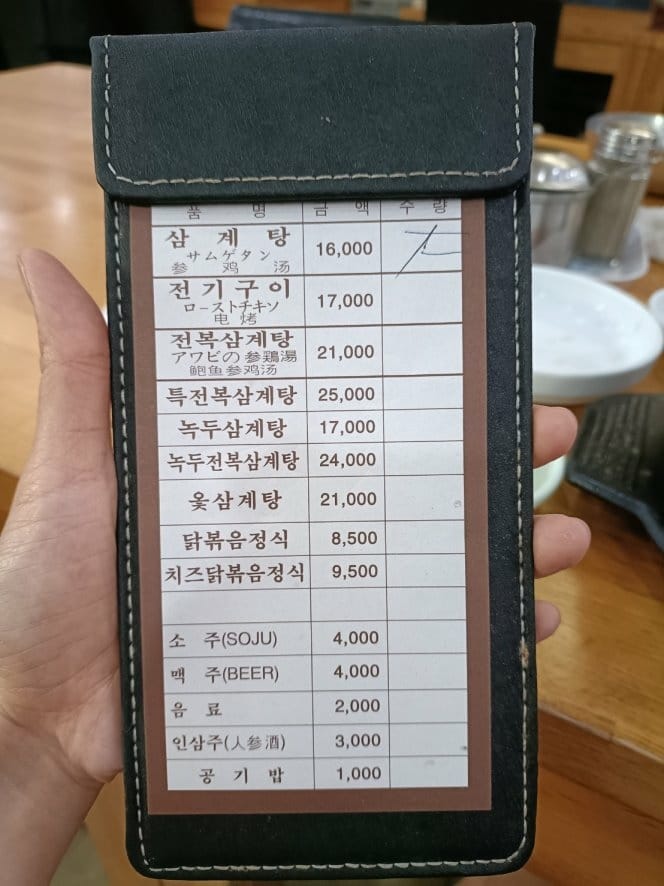 품 명 금 액 수 량
삼 계 탕 16,000
サムゲタン
参 鸡 汤
전기구이 17,000
ローストチキソ
电 烤
전복삼계탕 21,000
アワビの 参鶏湯
鲍鱼参鸡汤
특전복삼계탕 25,000
녹두삼계탕 17,000
녹두전복삼계탕 24,000
옻삼계탕 21,000
닭볶음정식 8,500
치즈닭볶음정식 9,500
소 주(SOJU) 4,000
맥 주(BEER) 4,000
음 료 2,000
인삼주(人参酒) 3,000
공 기 밥 1,000